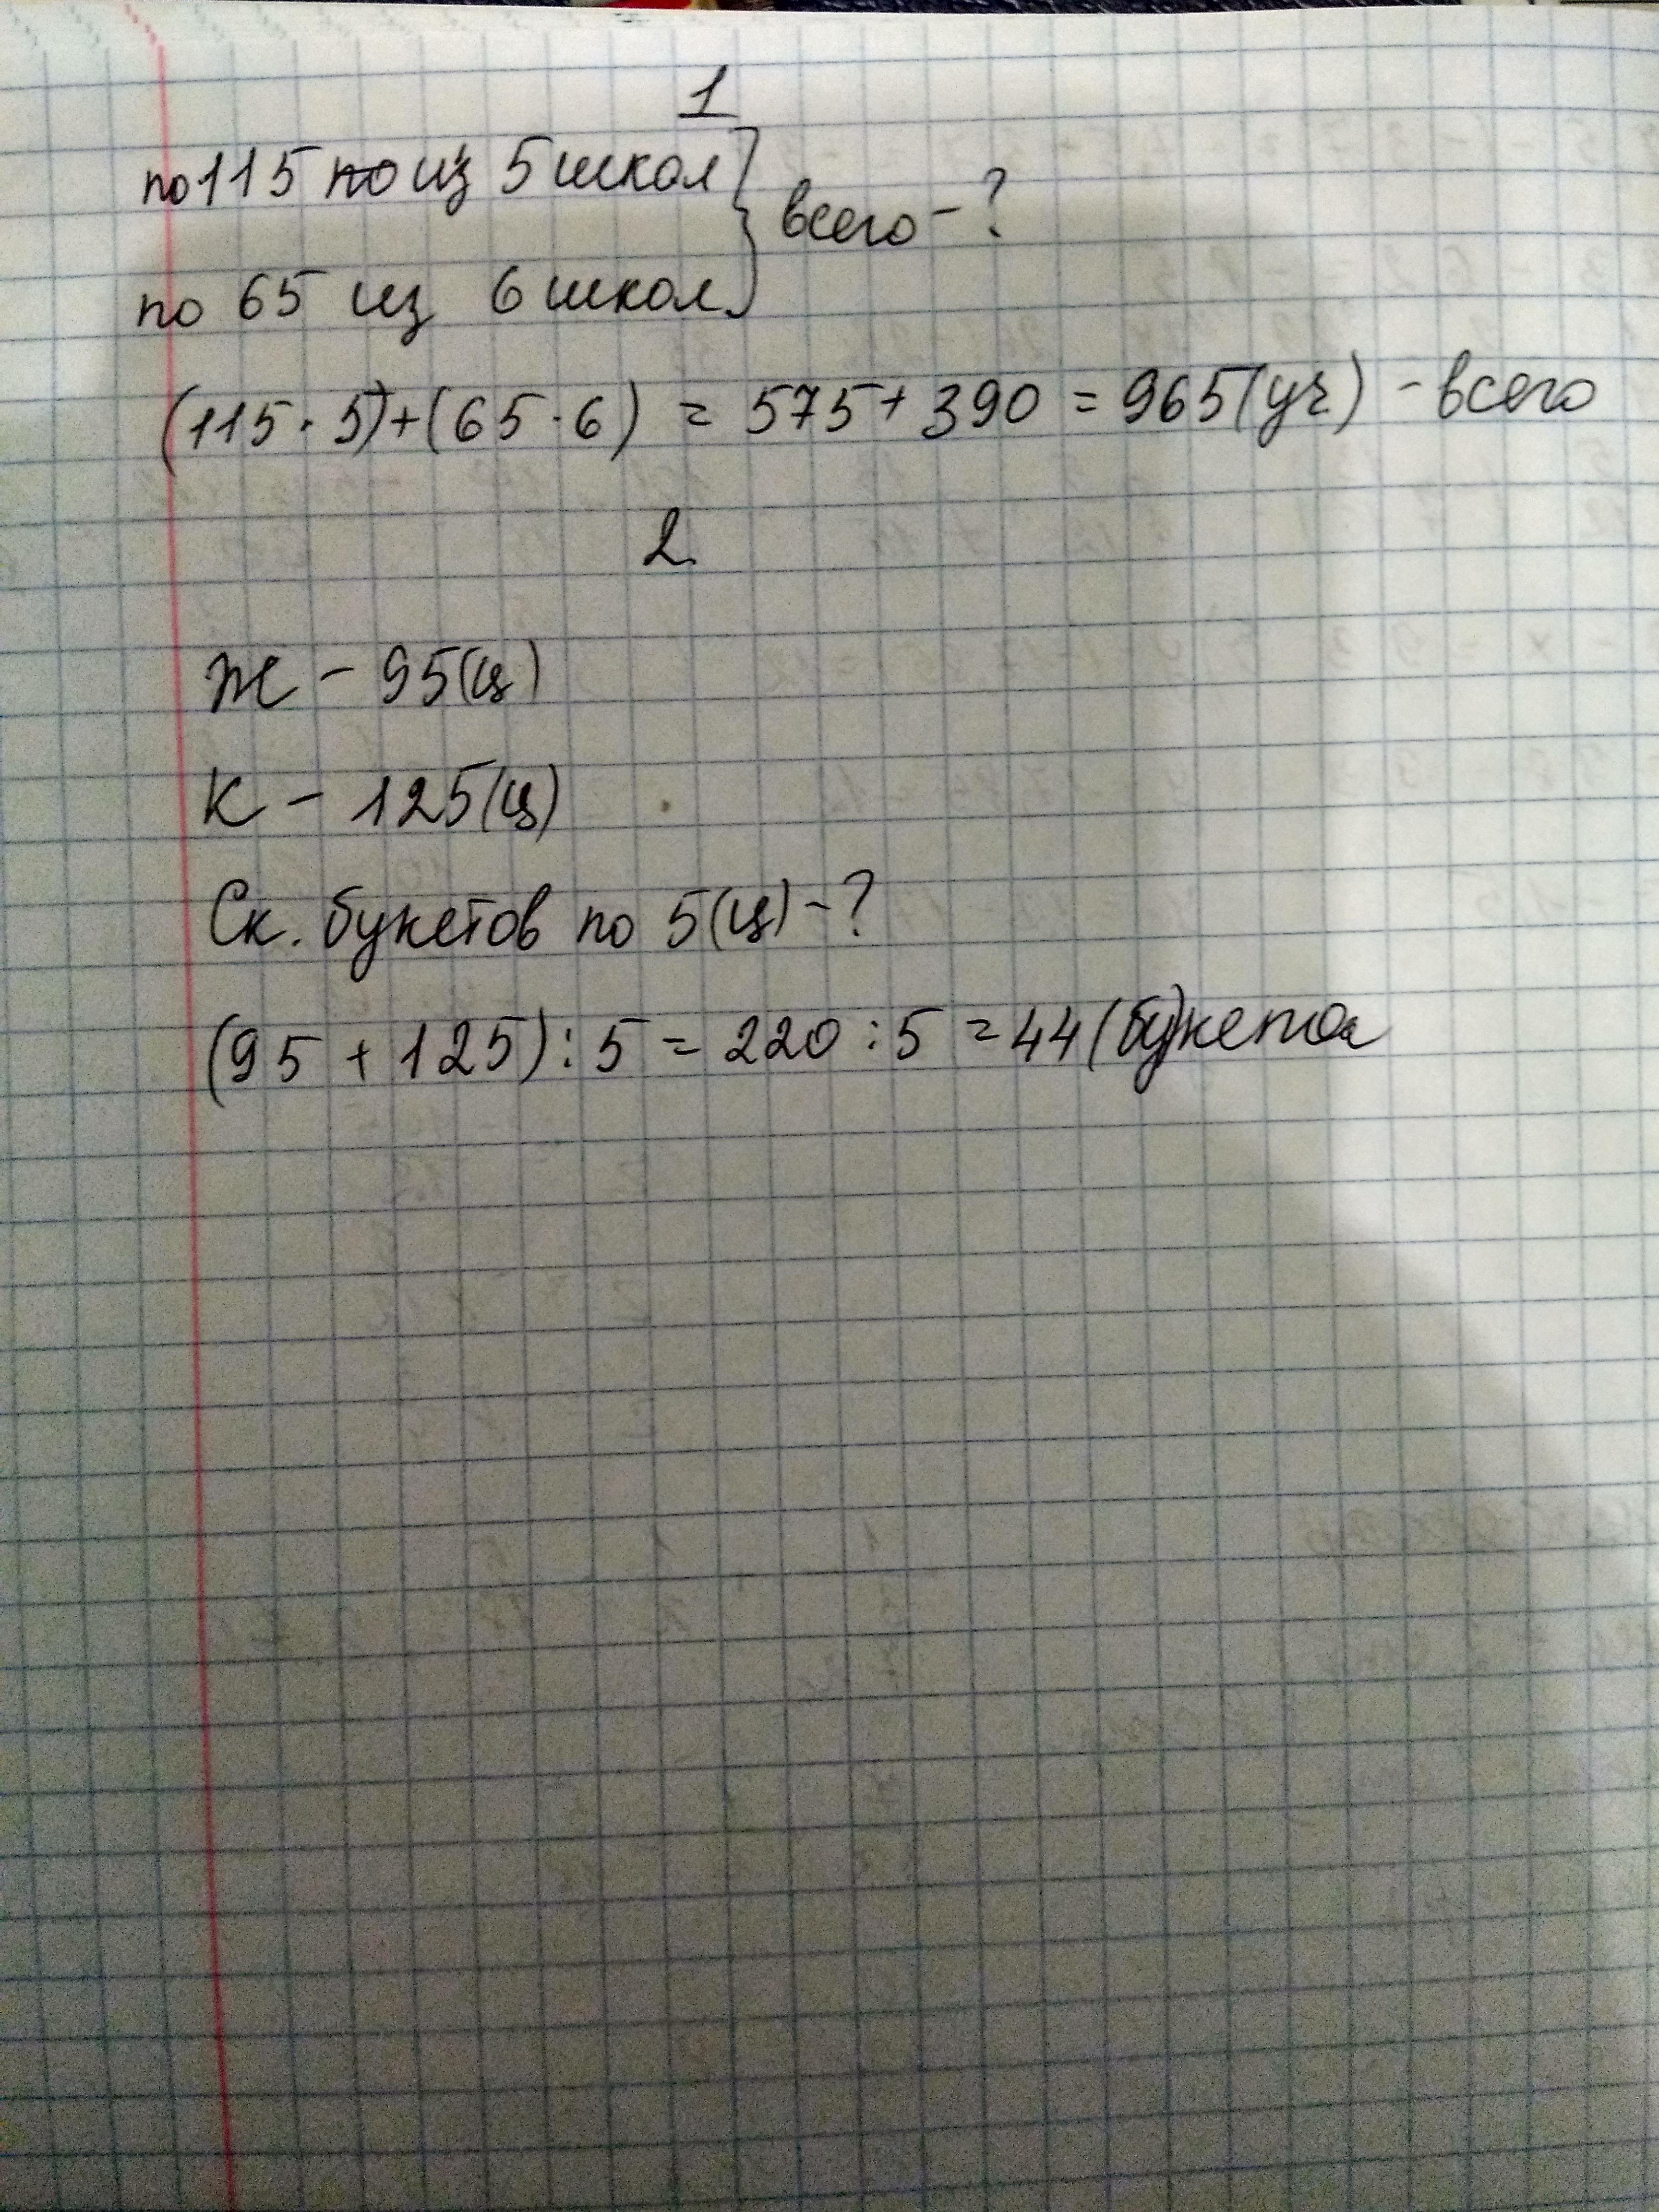 1
по 115 по из 5 школ
всего - ?
по 65 из 6 школ
(115 · 5) + (65 · 6) = 575 + 390 = 965 (уч) - всего
2
Ж - 95 (ц)
К - 125 (ц)
Ск. букетов по 5 (ц) - ?
(95 + 125) : 5 = 220 : 5 = 44 (бу)кета